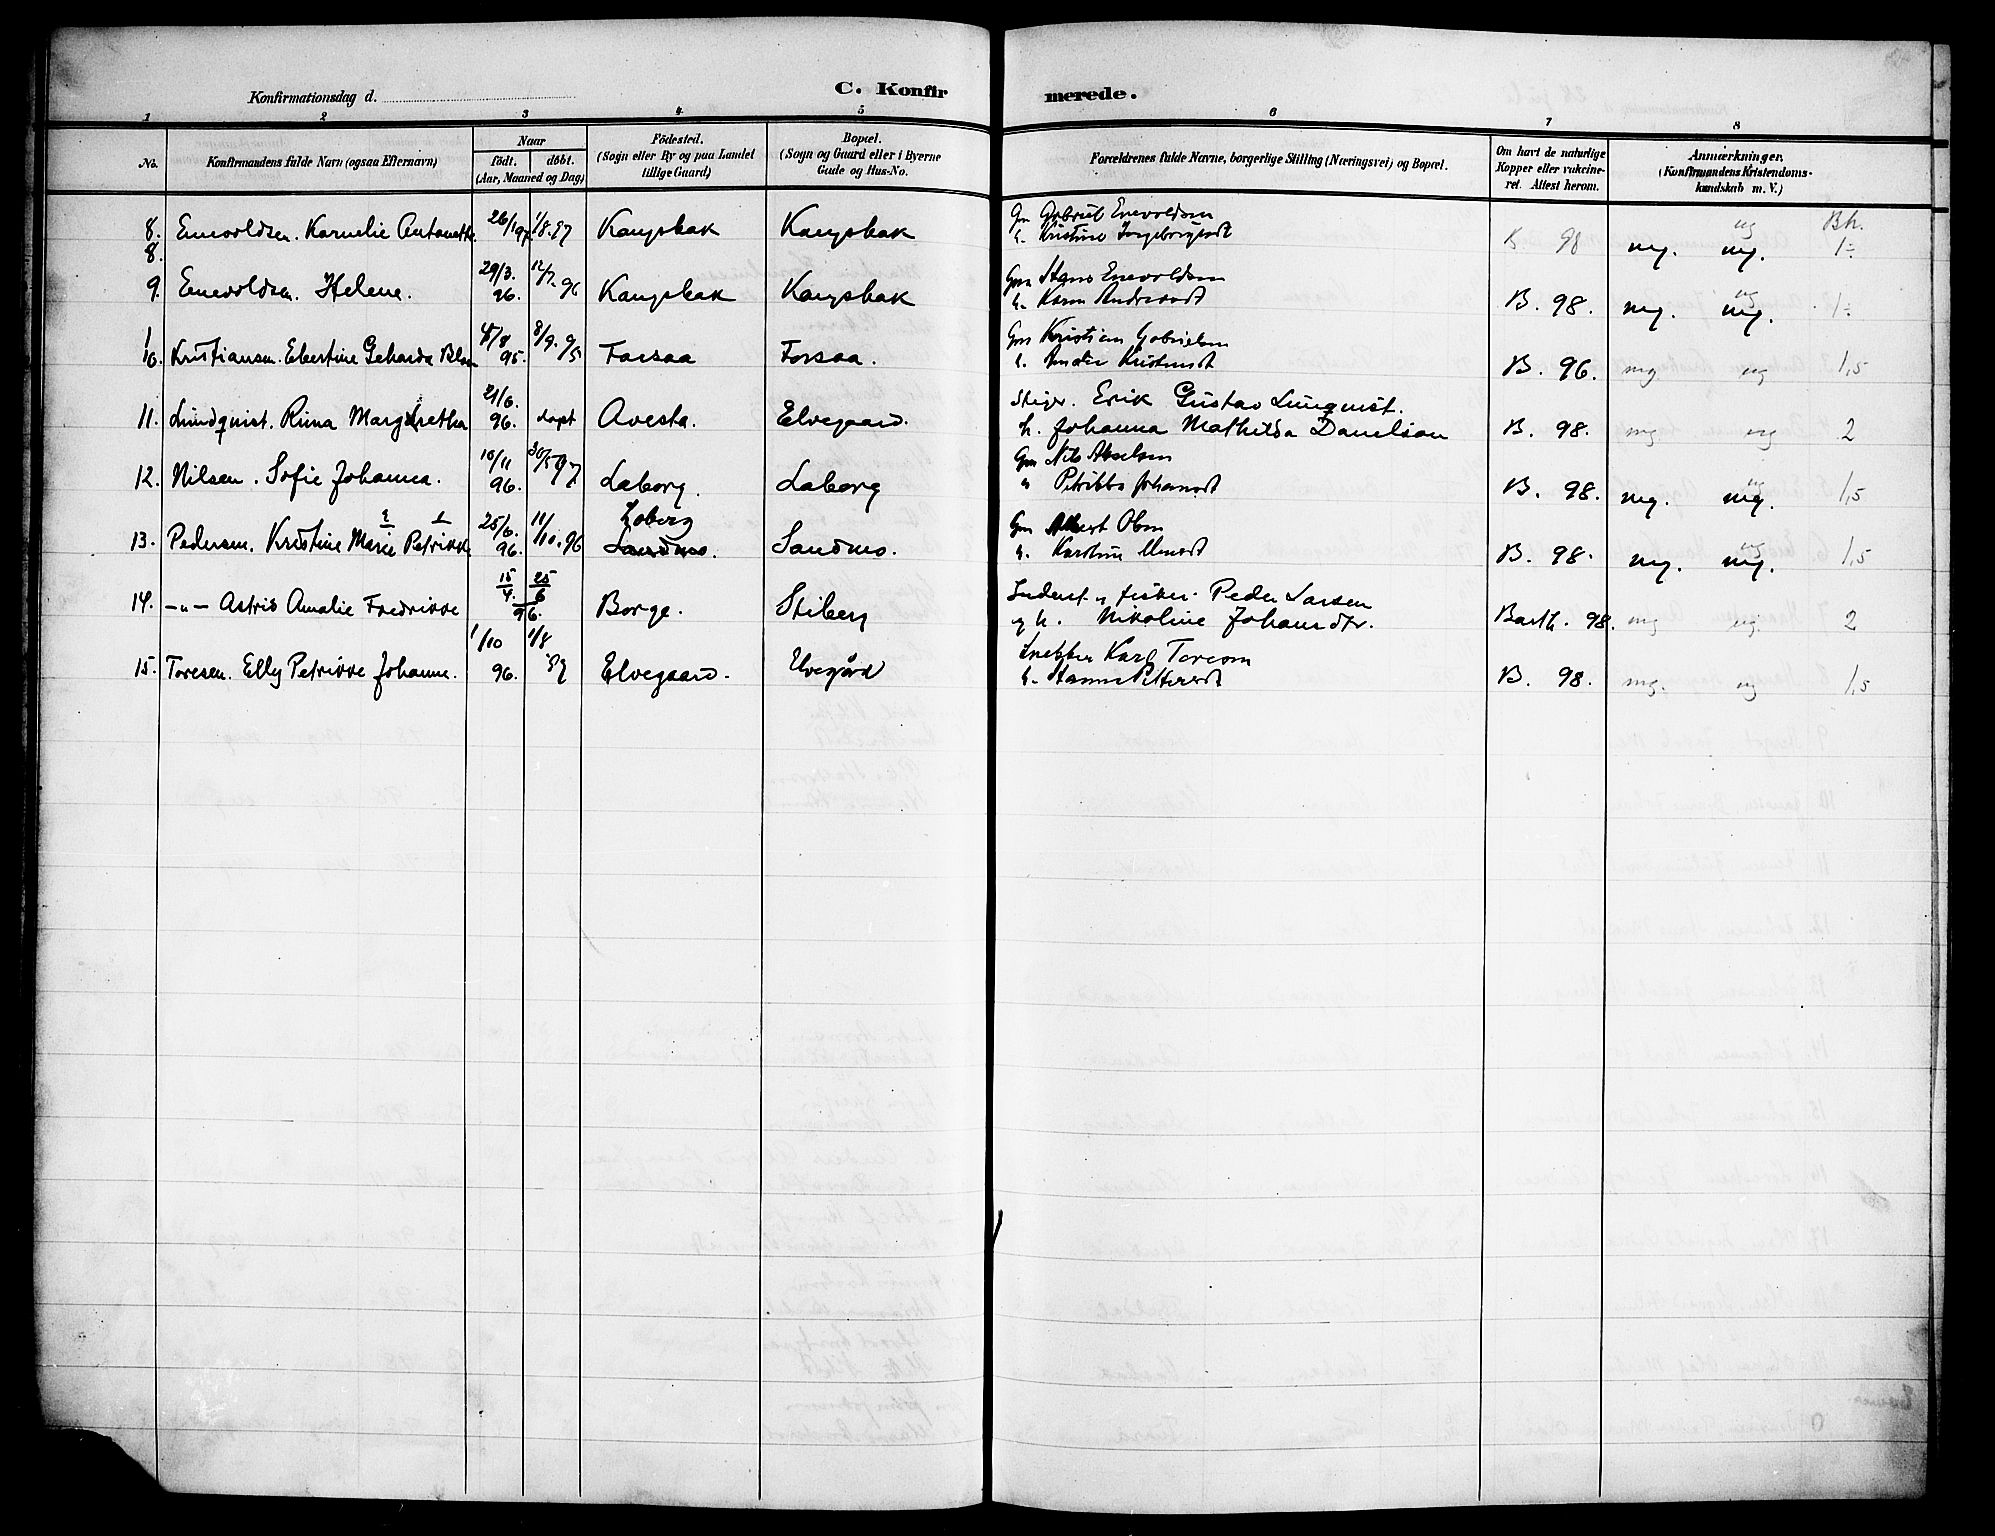 C. Konfirmerede.
Konfirmationsdag d.
1 2 3 4 5 6 7 8
No. Konfirmandens fulde Navn (ogsaa Efternavn) Naar födt. döbt. (Aar, Maaned og Dag) Födested. (Sogn eller By og paa Landet tillige Gaard) Bopæl. (Sogn og Gaard eller i Byerne Gade og Hus-No. Forældrenes fulde Navne, borgerlige Stilling (Næringsvei) og Bopæl. Om havt de naturlige Kopper eller vakcineret. Attest herom. Anmærkninger. (Konfirmandens Kristendomskundskab m. V.)
Gm Gabriel Enevoldsen ug Bh.
8. Enevoldsen. Kornelie Antonette. 26/1 97. 1/8. 97 Kangsbak Kangsbak h. Kristine Ingeborg B 98 mg. mg. 1÷
8.
29/3. 12/7. Gm Hans Enevoldsen
9. Enevoldsen. Helene. 96. 96 Kangsbak Kangsbak h. Karen B. 98. mg. mg. 1÷
4/8 8/9. 95 Gm Kristian Gabrielsen
10. Kristiansen. Ebertine Geharda 95. Forsaa Forsaa. h. B. 96. mg. ug 1,5
21/6. Stiger. Erik Gustav Lunqvist.
11. Lundquist. Runa Margretha 96. døpt Avesta. Elvegaard. h. Johanna Mathilda Danielson B. 98. mg ug 2
10/11 30/5 97 Gm Nils
12. Nilsen. Sofie Johanna. 96. Laberg. Laberg B. 98. mg. mg. 1,5
2 1 25/6. 11/10. 96 Loberg Gm Albert Olsen
13. Pedersen. Kristine Marie Petrikke 96. Sandmo. Sandmo. h. Karoline B. 98. mg. mg. 1,5
15/4. 25/6 Inderst og fisker. Peder Larsen
14. -"- Astrid Amalie Fredrikke 96. Borge. Stiberg og h. Nikoline Johansdtr. Barth. 98. mg ug. 2
1/10 1/8 Snekker Karl Toresen
15. Toresen. Elly Petrikke Johanne. 96. 97 Elvegaard. Elvegård h. Hanna B. 98. mg. ug 1,5